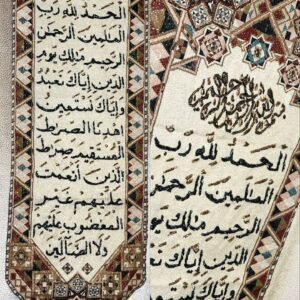 الحمد لله رب
العلمين الرحمن
الرحيم ملك يوم
الدين إياك نعبد
وإياك نستعين
اهدنا الصرط
المستقيم صرط
الذين أنعمت
عليهم غير
المغضوب عليهم
ولا الضالين
بسم الله الرحمن الرحيم
الحمد لله رب
العلمين الرحم
الرحيم ملك يو
الدين إياك ن
وإياك نستعي